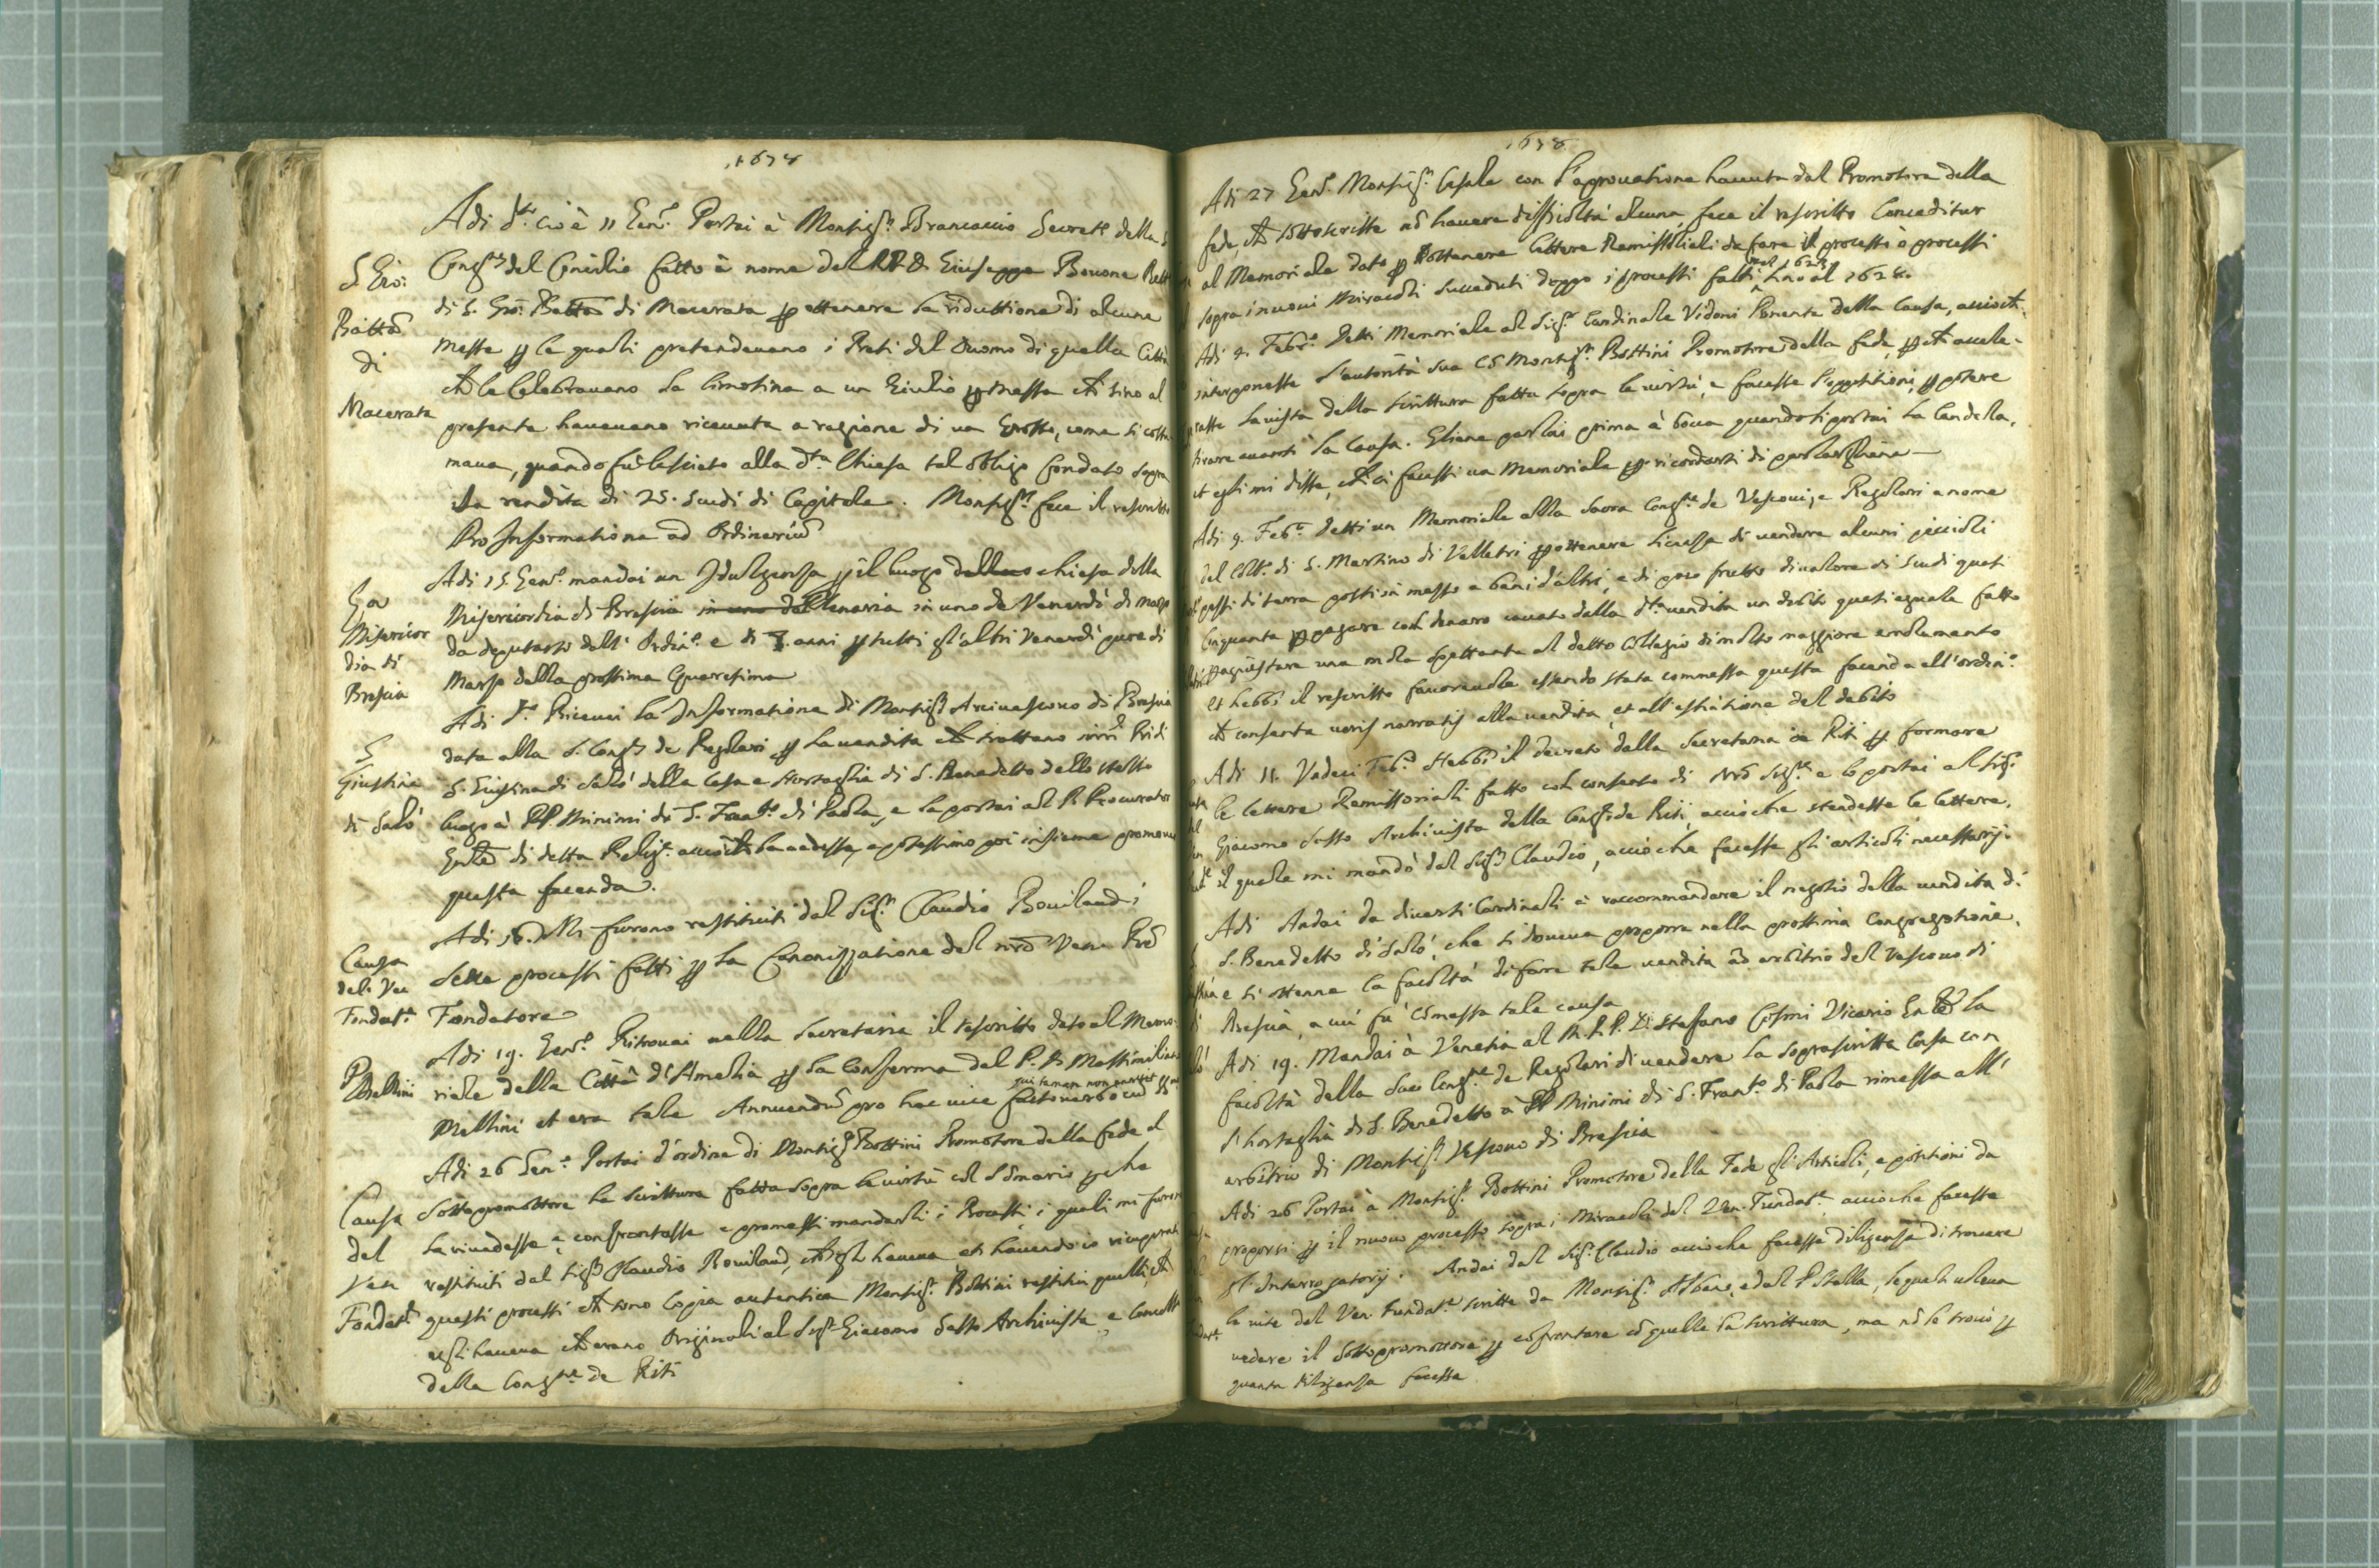 1678
Adi d.to cioè 11 Gen.o Portai à Monsig.r Brancaccio Secret.o della
S. Gio:
Batta
di
Macerata
Cong.ne del Concilio fatto à nome del P. D. Giuseppe Bovone Rett
di S. Gio: Batta di Macerata p ottenere la riduttione di alcune
messe p le quali pretendevano i Preti del Duomo di quella Città
che le celebravano la limosina a un Giulio p messa che sino al
presente havevano ricevuta a ragione di un Grosso, come si costu
mava, quando fù lasciato alla d.ta Chiesa tal obligo fondato sopra
la rendita di 25. scudi di Capitale. Monsig.r fece il rescritto
Pro Informatione ad Ordinariu
Misericor
dia di
Brescia
Adi 15 Gen.o mandai un Indulgenza p il luogo chiesa della
Misericordia di Brescia in uno de Venerdì di marzo
da deputarsi dall' Ordin.o e di 7. anni p tutti gl'altri Venerdì pure di
Marzo della prossima Quaresima
S
Giustina
di Salò
Adi d.o Ricevei la Informatione di Monsig.r Arcivescovo di Brescia
data alla S. Cong.ne de Regolari p la vendita che trattano i nri Pridi
S. Giustina di Salò della Casa e hortaglia di S. Benedetto dello stesso
luogo à PP. Minimi di S. Fran.co di Paola, e la portai al P. Procurator
Gnle di detta Relig.e acciò che la vedesse, e potessimo poi insieme promover
questa facenda.
Causa
del Ven
Fondat.re
Adi 16. Mi furono restituiti dal Sig.r Claudio Bouilaud i
sette processi fatti p la Canonizzatione del nro Vene Pre
Fondatore
P
Mellini
Adi 19. Gen.o Ritrovai nella Secretaria il rescritto dato al Memo-
riale della Città d'Amelia p la Conferma del P. D. Massimiliano
qui tamen non
Mellini et era tale Annuendu pro hac vice facto verbo cu SS.mo
Causa
del
Ven
Fondat.re
Adi 26 Gen.o Portai d'ordine di Monsig.r Bottini Promotore della fede al
Sottopromottore la Scrittura fatta sopra le virtù col Somario p che
la rivedesse e confrontasse e promessi mandarli i Processi, i quali mi furon
restituiti dal Sig.r Claudio Bouilaud, che gli haveva et havendo io ricuperati
questi processi che sono Copia autentica Monsig.r Bottini restituì quelli, che
egli haveva che erano Originali al Sig.r Giacomo Sasso Archivista, e Cancell
della Cong.ne de Riti
1678
Adi 27 Gen.o Monsig.r Casale con l'aprovatione havuta dal Promotore della
fede, che sottoscritte nō havere difficoltà alcuna, fece il rescritto Conceditur
al Memoriale dato p ottenere lettere Remissoriali da fare il processi ò processi
nel 1623
sopra i nuovi Miracoli succeduti doppo i processi fatti sino al 1628.
Adi 9. Feb.o Detti Memoriale al Sig.r Cardinale Vidoni Ponente della Causa, acciò che
interponesse l'autorità sua co Monsig.r Bottini Promotore della fede, p che accele-
rasse la vista della scrittura fatta sopra le virtù, e facesse l'oppositioni, p potere
tirare avanti la Causa. Gliene parlai prima à bocca quando li portai la Candela,
et egli mi disse, che ci facessi un Memoriale p ricordarsi di parlargliene
Adi 9. Feb.o detti un Memoriale alla Sacra Cong.ne de Vescovi, e Regolari a nome
del Coll.o di S. Martino di Velletri p ottenere licenza di vendere alcuni piccioli
pezzi di terra posti in mezzo a beni d'altri, e di poco frutto di valore di Scudi quasi
Cinquanta p pagare col denaro cavato dalla d.ta vendita un debito quasi eguale fatto
p acquistare una mola spettante al detto Collegio di molto maggiore emolumento
et hebbi il rescritto favorevole essendo stata commessa questa facenda all'ordin.o
che consenta veris narratis alla vendita, et all'estintione del debito
Adi 11. Vedeci Feb.o Hebbi il decreto dalla Secretaria de Riti p formare
le lettere Remissoriali fatto col consenso di Nro Sig.re e lo portai al Sig.r
Giacomo Sasso Archivista della Cong.ne de Riti, acciò che stendesse le lettere,
il quale mi mandò dal Sig.r Claudio, acciò che facesse gli articoli necessarij.
Adi Andai da diversi Cardinali à raccommandare il negotio della vendita di
S. Benedetto di Salò, che si doveva proporre nella prossima Congregatione,
e si ottenne la facoltà di fare tale vendita ad arbitrio del Vescovo di
Brescia, a cui fù cōmessa tale causa
Adi 19. Mandai à Venetia al M. R. P. D. Stefano Cosmi Vicario Gnle la
facoltà della Sac. Cong.ne de Regolari di vendere la soprascritta Casa con
l'hortaglia di S. Benedetto à PP Minimi di S. Fran.co di Paola rimessa all'
arbitrio di Monsig.r Vescovo di Brescia
Adi 26 Portai à Monsig.r Bottini Promotore della Fede gli Articoli, e positioni da
proporsi p il nuovo processo sopra i Miracoli del Ven. Fundat.re, acciò che facesse
gl'Interrogatorij. Andai dal Sig.r Claudio acciò che facesse diligenza di trovare
le vite del Ven. Fundat.re scritte da Monsig.r Albano, e dal P Stella, le quali voleva
vedere il Sottopromottore p cofrontare cō quelle la scrittura, ma nō le trovò p
quanta diligenza facesse